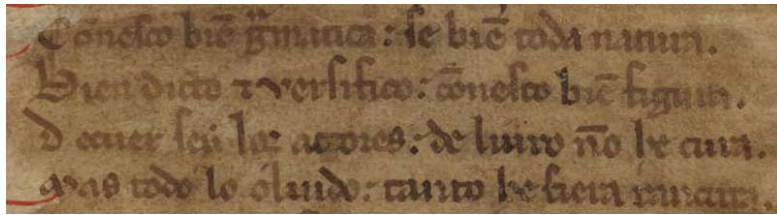 Connesco biē gͣmatica: se biē toda natura.
Bien dicto ⁊ versifico: cōnesco biē figura.
De cuer seu los actores: de liuro nō he cura.
Mas todo lo oluido: tanto he fiera rancura.